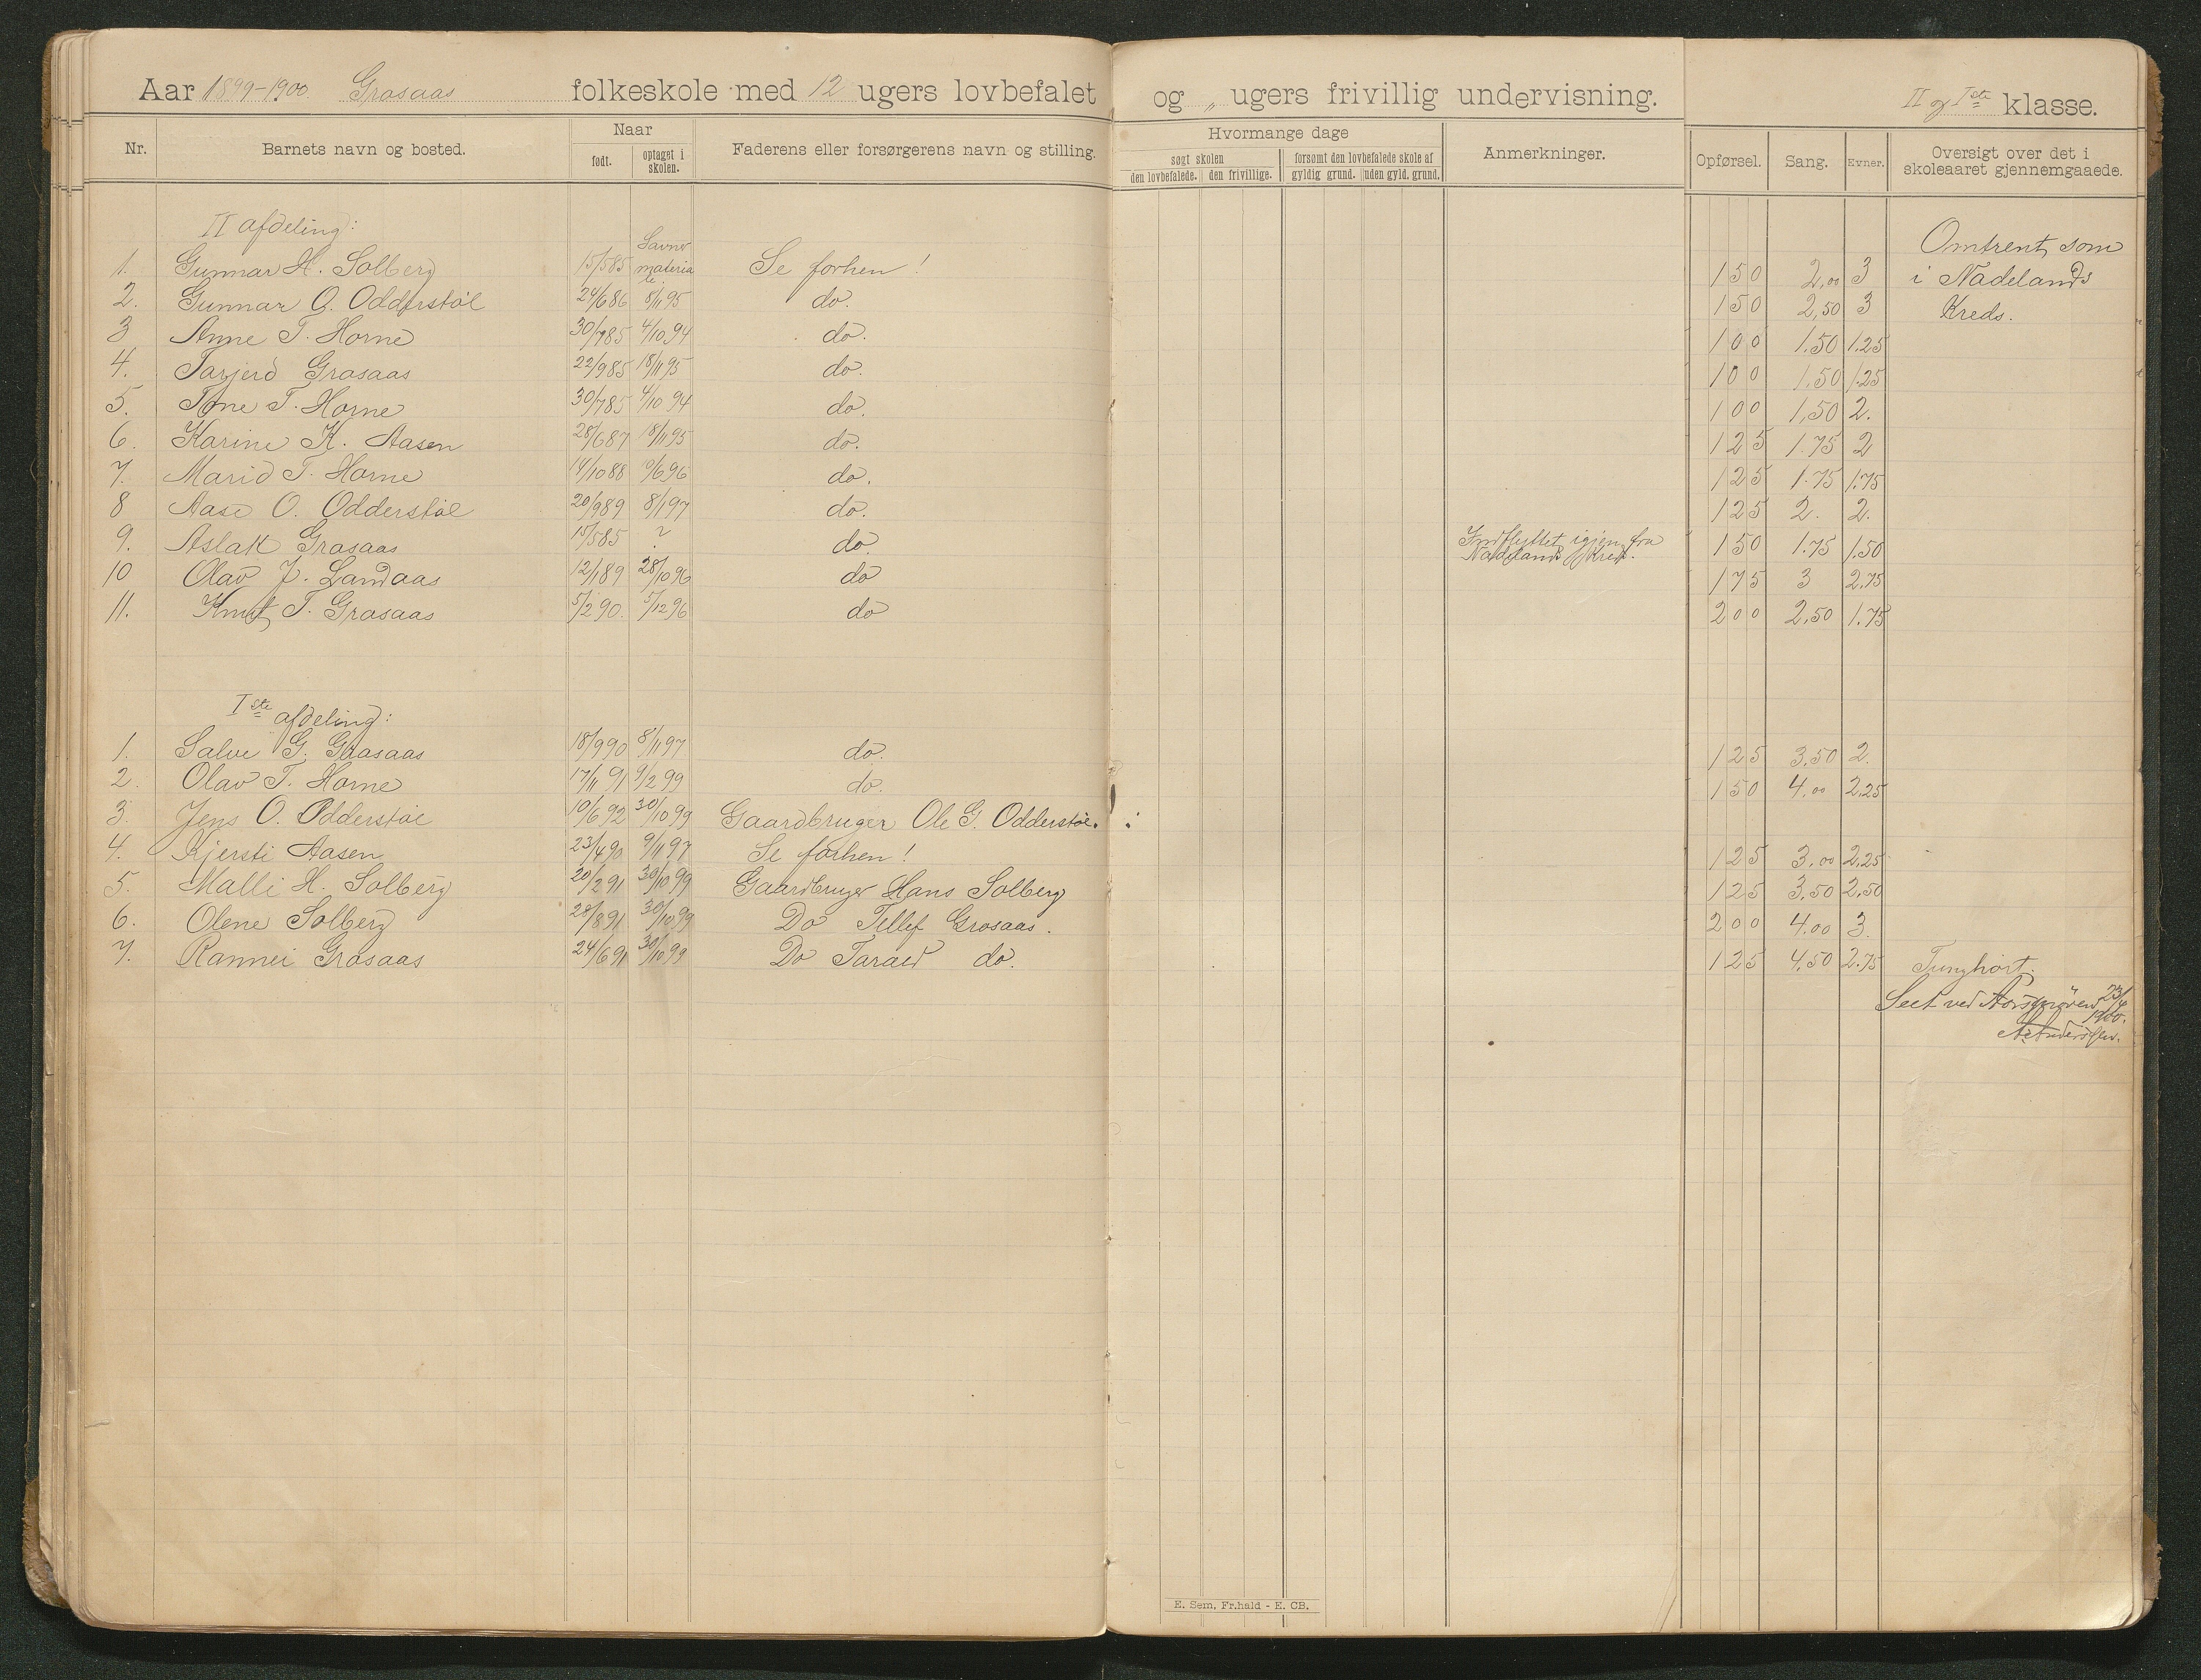 Aar 1899-1900 Grasaas folkeskole med 12 ugers lovbefalet og „ ugers frivillig undervisning. II og Iste klasse.
Nr. Barnets navn og bosted. Naar født. optaget i skolen. Faderens eller forsørgerens navn og stilling. Hvormange dage søgt skolen den lovbefalede. den frivillige. forsømt den lovbefalede skole af gyldig grund. uden gyld. grund. Anmerkninger. Opførsel. Sang. Evner. Oversigt over det i skoleaaret gjennemgaaede.
II afdeling:
1. Gunnar H. Solberg 15/5 85 Savner materiale. Se forhen! 150 2,00 3 Omtrent som
2. Gunnar O. Odderstøl 24/6 86 8/11 95 do. 150 2,50 3 i Nadelands
3 Anne T. Horne 30/7 85 4/10 94 do. 100 1.50 1.25 Kreds.
4. Tarjerd Grasaas 22/9 85 18/11 95 do. 100 1.50 1.25
5. Tone T. Horne 30/7 85 4/10 94 do. 100 1,50 2.
6. Karine K. Aasen 28/6 87 18/11 95 do. 125 1.75 2
7. Marid T. Horne 14/10 88 /6 96 do. 125 1.75 1.75
8 Aase O. Odderstøl 20/9 89 8/1 97 do. 125 2. 2.
9. Aslak Grasaas 15/5 85 ? do. Indflyttet igjen fra Nadelands Kreds. 150 1.75 1.50
10 Olav J. Landaas 12/1 89 28/10 96 do 175 3 2.75
11. Knut T. Grasaas 5/2 90. 5/12 96 do 200 2,50 1.75
Iste afdeling:
1. Salve G. Grasaas 18/9 90 8/11 97 do. 125 3,50 2.
2. Olav T. Horne 17/11 91 9/2 99 do. 150 4,00 2,25
3. Jens O. Odderstøl 19/6 92 30/10 99 Gaardbruger Ole G. Odderstøl.
4. Kjersti Aasen 23/4 90 9/11 97 Se forhen! 125 3,00 2,25
5. Malli H. Solberg 20/2 91 30/10 99 Gaardbruger Hans Solberg 125 3,50 2,50
6. Olene Solberg 28/8 91 30/10 99 Do Tellef Grosaas. 200 4.00 3.
7. Rannei Grasaas 24/6 91 30/10 99 Do Tarald do. 125 4,50 2.75 Tunghørt.
Seet ved Aarsprøven 23/4 1900.
A Andersen.
E. Sem, Fr.hald - E. CB.